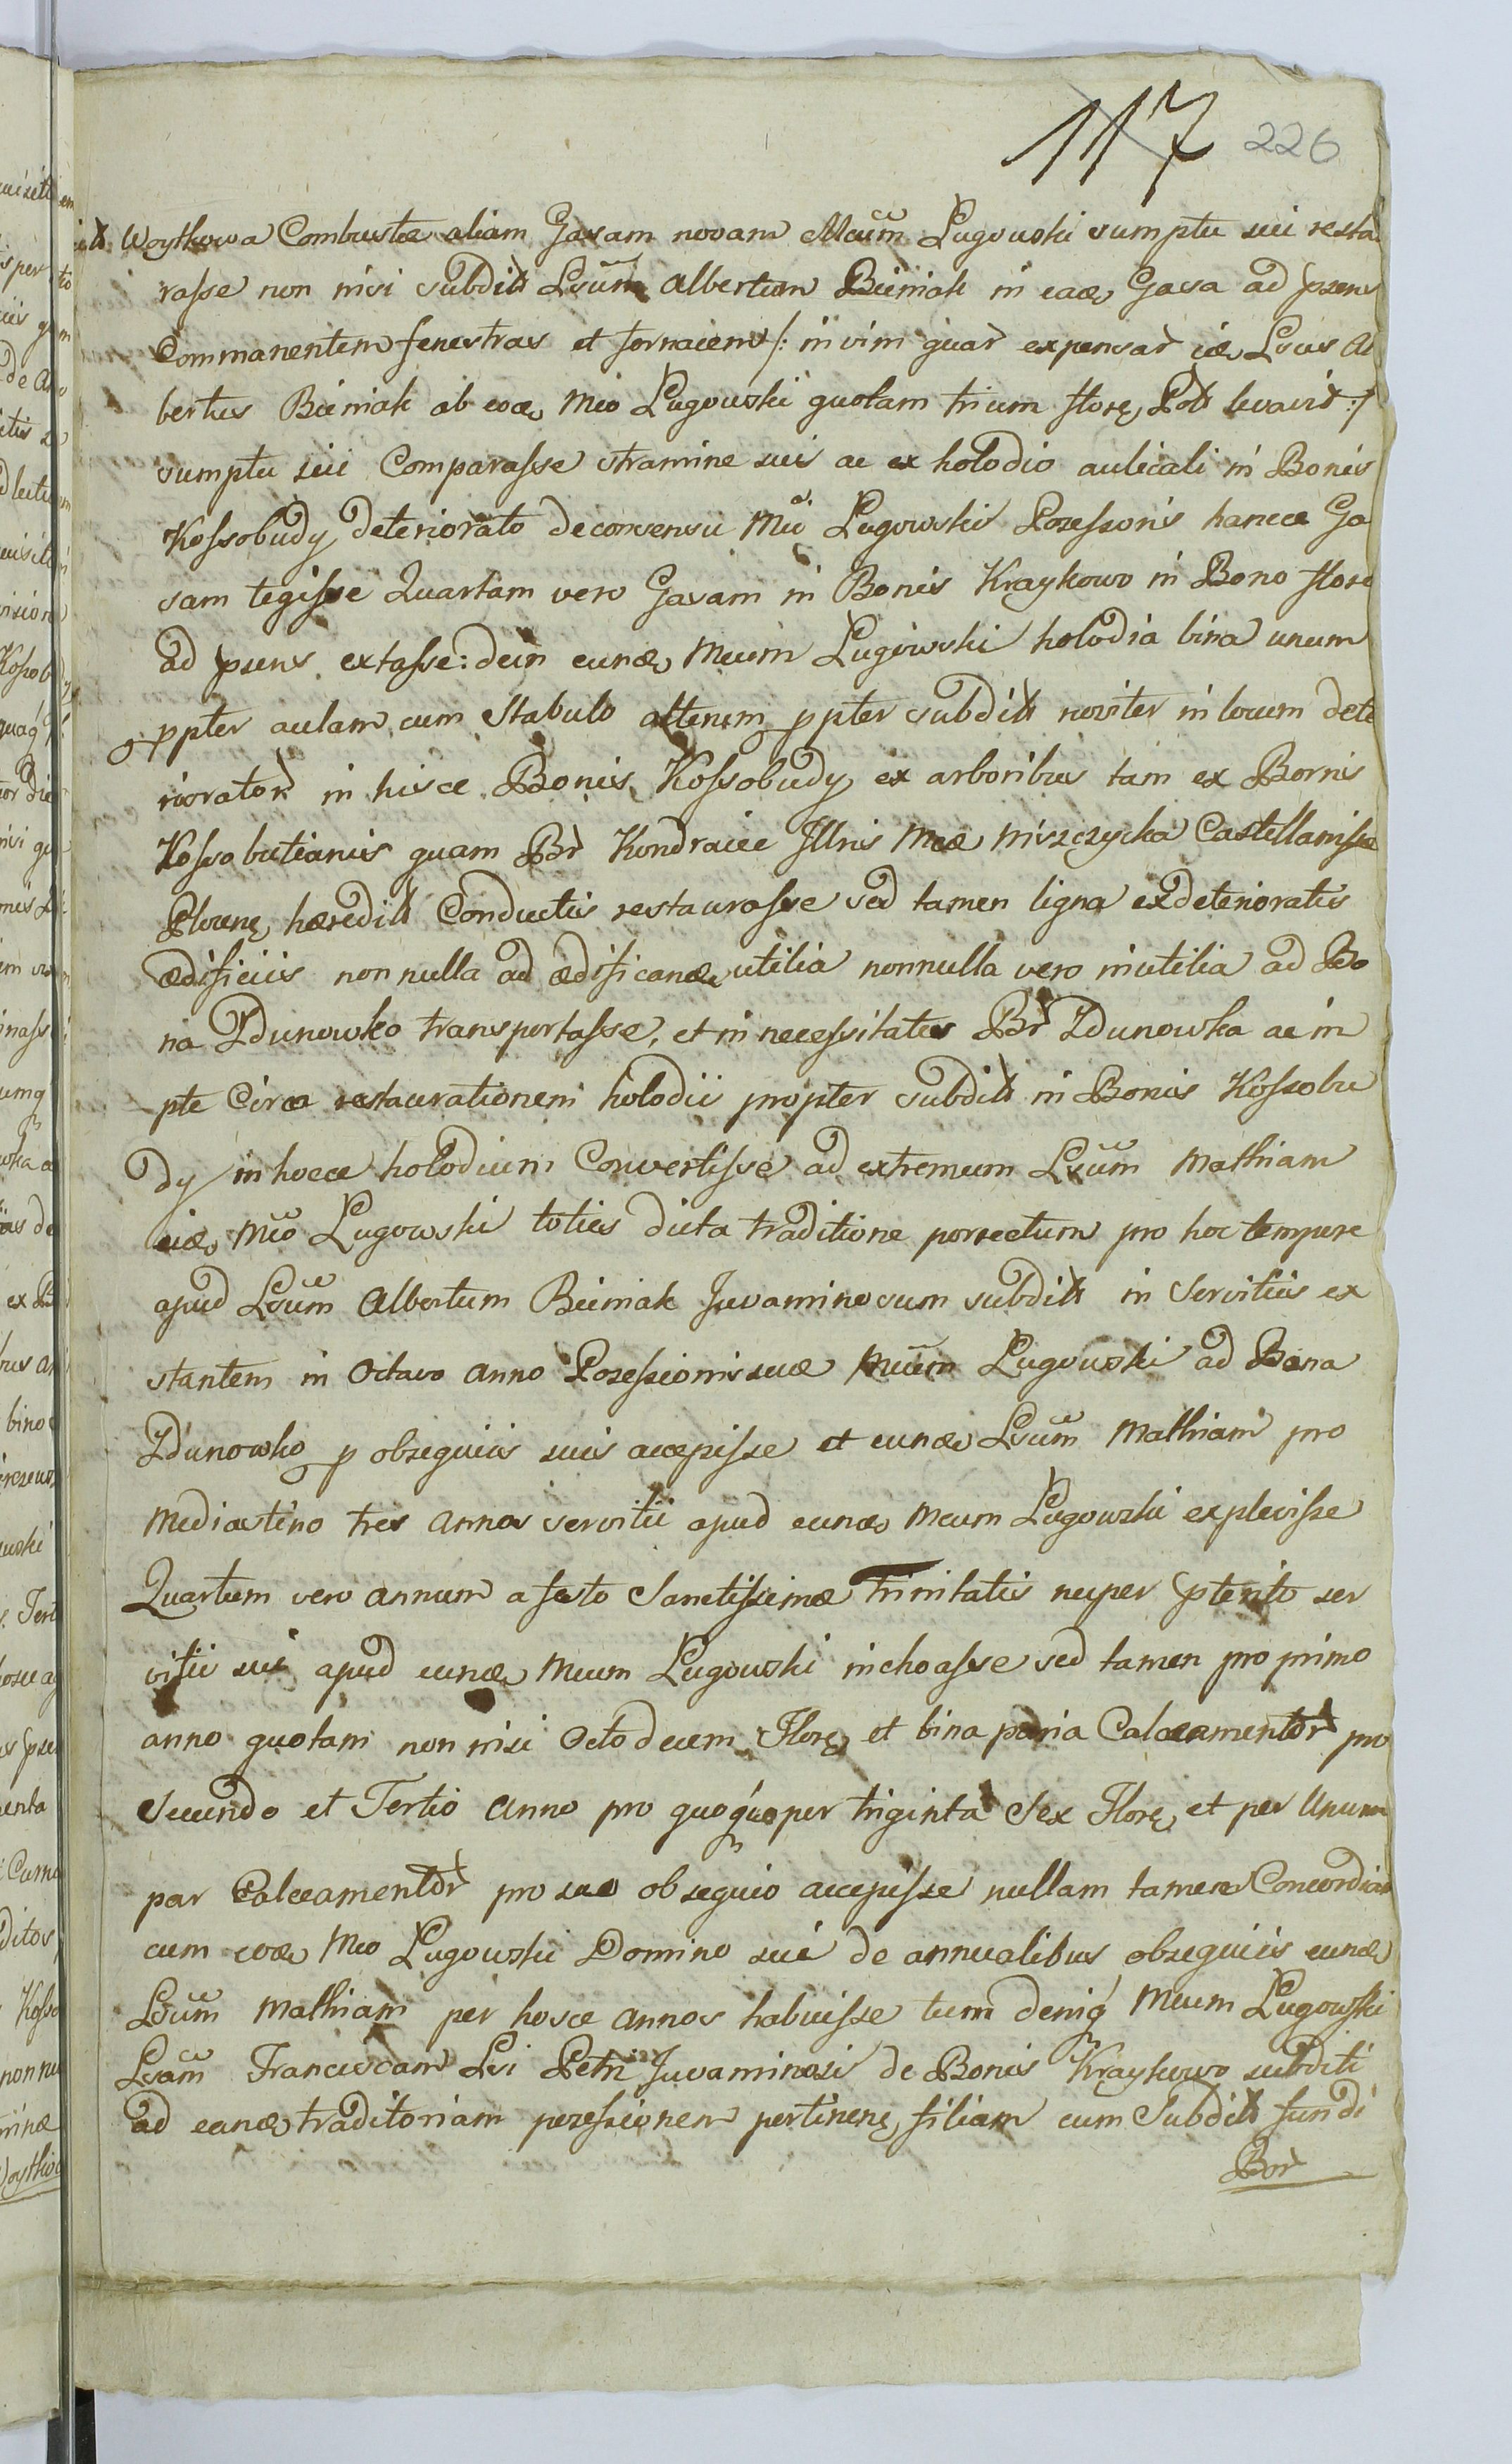 117 226
Woytkowa Combustæ aliam Gazam novam Mcum Ługowski sumptu sui resta
rasse non nisi subditt Lsum Albertum Bieniak in eade Gasa ad psens
Commanentem fenestras et fornacem /: in vim quar expensar ide Lsus Al
bertus Bieniak ab eode Mco Ługowski quotam trium flore Poll levavit :/
sumptu sui Comparasse stramine suis ac ex holodio aulicali in Bonis
Kossobudy deteriorato de consensu Mci Ługowski Possessoris hancce Ga
sam tegisse Quartam vero Gasam in Bonis Kraykowo in Bono flore
ad psens extasse: dein eunde Mcum Ługowski holodia bina unum
ppter aulam cum Stabulo alterum ppter subditt noviter in locum dete
riorator in hisce Bonis Kossobudy ex arboribus tam ex Bornis
Kossobutianis quam Br Kondraiec Illris Mcæ Miszczycka Castellanissæ
Plocen hæreditt Conductis restaurasse sed tamen ligna ex deterioratis
ædificiis non nulla ad ædificand utilia nonnulla vero inutilia ad Bo
na Zdunowko transportasse, et in necessitates Br Zdunowka ac in
pte Circa restaurationem holodii propter subditt in Bonis Kossobu
dy in hocce holodium Convertisse ad extremum Lsum Mathiam
eide Mco Ługowski toties dicta traditione porrectum pro hoc tempore
apud Lsum Albertum Bieniak Juvaminosum subditt in Servitiis ex
stantem in Octavo anno Possessionis suæ Mcum Ługowski ad Bona
Zdunowko p obsequiis suis accepisse et eunde Lsum Mathiam pro
Mediastino tres annos servitii apud eunde Mcum Ługowski explevisse
Quartum vero annum a festo Sanctissimæ Trinitatis nuper pterito ser
vitii sui apud eunde Mcum Ługowski inchoasse sed tamen pro primo
anno quotam non nisi Octodecem Flore et bina paria Calceamentor pro
Secundo et Tertio anno pro quoque per triginta Sex Flore et per Unum
par Calceamentor pro suo obsequio accepisse nullam tamen Concordiam
cum eode Mco Ługowski Domino sui de annualibus obsequiis eunde
Lsum Mathiam per hosce annos habuisse tum deniq Mcum Ługowski
Lsam Franciscam Lsi Petri Juvaminosi de Bonis Kraykowo subditi
ad eande traditoriam possessionem pertinen filiam cum Subditt fundi
Bor